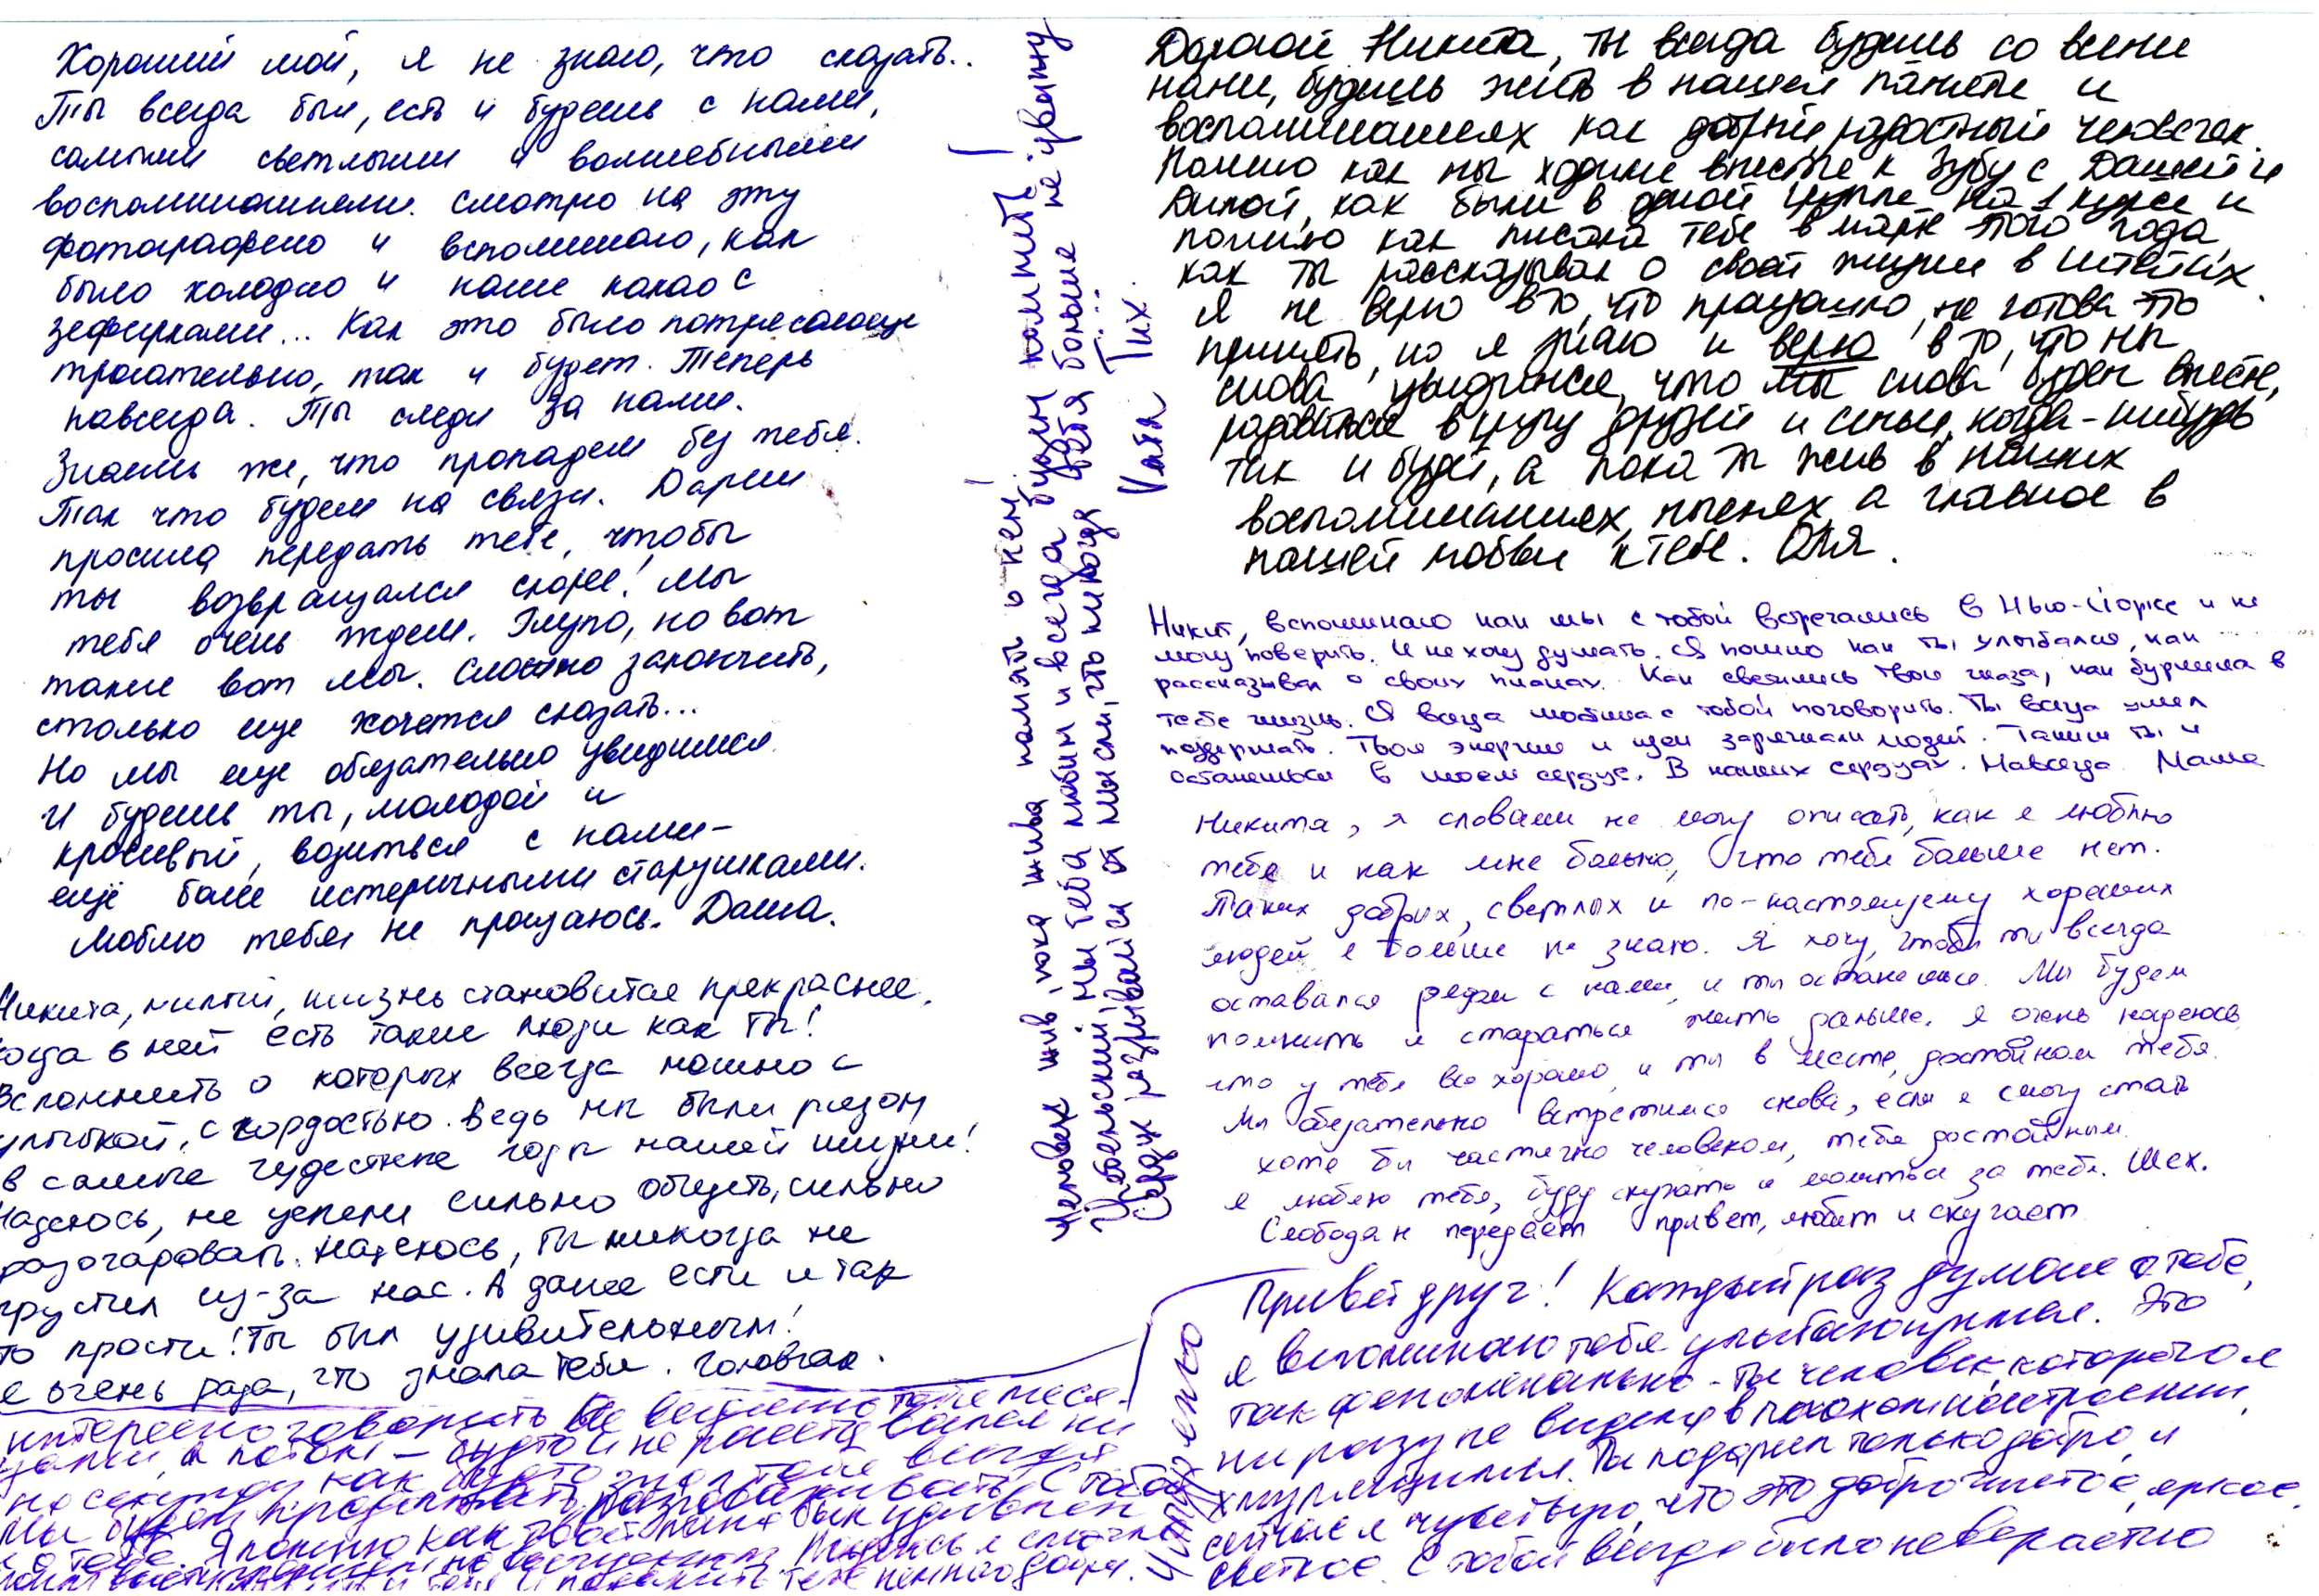 Хороший мой, я не знаю, что сказать..
Ты всегда был, есть и будешь с нами,
самыми светлыми и волшебными
воспоминаниями. Смотрю на эту
фотографию и вспоминаю, как
было холодно и наше какао с
зефирками... Как это было потрясающе
трогательно, так и будет. Теперь
навсегда. Ты следи за нами.
Знаешь же, что пропадем без тебя.
Так что будем на связи. Дарси
просила передать тебе, чтобы
ты возвращался скорее! Мы
тебя очень ждем. Глупо, но вот
такие вот мы. Сложно закончить,
столько еще хочется сказать...
Но мы еще обязательно увидимся
И будешь ты, молодой и
красивый, возиться с нами-
ещё более истеричными старушками.
Люблю тебя, не прощаюсь. Даша.
Никита, милый, жизнь становится прекраснее,
когда в ней есть такие люди как ты!
Вспомнить о которых всегда можно с
улыбкой, с гордостью. Ведь мы были рядом
в самые чудесные годы нашей жизни!
Надеюсь, не успели сильно обидеть, сильно
разочаровать. Надеюсь, ты никогда не
грустил из-за нас. А даже если и так
то прости! Ты был удивительным!
Я очень рада, что знала тебя. Головчак.
Человек жив, пока жива память о нем
мы тебя любим и всегда будем помнить
Сердце разрывается от мысли, что никогда больше не увижу тебя....
Катя Тих.
Дорогой Никита, ты всегда будешь со всеми
нами, будешь жить в нашей памяти и
воспоминаниях как добрый, радостный человечек.
Помню как мы ходили вместе к Зубу с Дашей и
Димой, как были в одной группе на 1 курсе и
помню как писала тебе в марте этого года,
как ты рассказывал о своей жизни в штатах.
Я не верю в то, что прощально, не готова это
принять, но я знаю и верю в то, что мы
снова увидимся, что мы снова будем вместе,
радоваться в кругу друзей и семьи, когда-нибудь
так и будет, а пока ты жив в наших
воспоминаниях, мыслях а главное в
нашей любви к тебе. Оля.
Никит, вспоминаю как мы с тобой встречались в Нью-Йорке и не
могу поверить. И не хочу думать. Я помню как ты улыбался, как
рассказывал о своих планах. Как светились твои глаза, как бурлила в
тебе жизнь. Я всегда любила с тобой поговорить. Ты всегда умел
поддержать. Твоя энергия и идеи заряжали людей. Таким ты и
останешься в моем сердце. В наших сердцах. Навсегда. Маша
Никита, я словами не могу описать, как я люблю
тебя и как мне больно, что тебя больше нет.
Таких добрых, светлых и по-настоящему хороших
людей я больше не знаю. Я хочу, чтобы ты всегда
оставался рядом с нами, и ты останешься. Мы будем
помнить и стараться жить дальше. Я очень надеюсь,
что у тебя все хорошо, и ты в месте, достойном тебя.
Мы обязательно встретимся снова, если я смогу стать
хотя бы частично человеком, тебя достойным.
Я люблю тебя, буду скучать и молиться за тебя. Шех.
Слободан передаёт привет, любит и скучает
Привет друг! Каждый раз думая о тебе,
я вспоминаю тебя улыбающимся. Это
так феноменально - ты человек, которого я
ни разу не видела в плохом настроении,
хмурящимся. Ты подарил только добро, и
сейчас я чувствую, что это добро чистое, яркое,
светлое. С тобой всегда было невероятно
интересно говорить. Не виделись
и потом - будто и не расставались ни
на секунду
Мы будем продолжать разговаривать с тобой
Я помню как